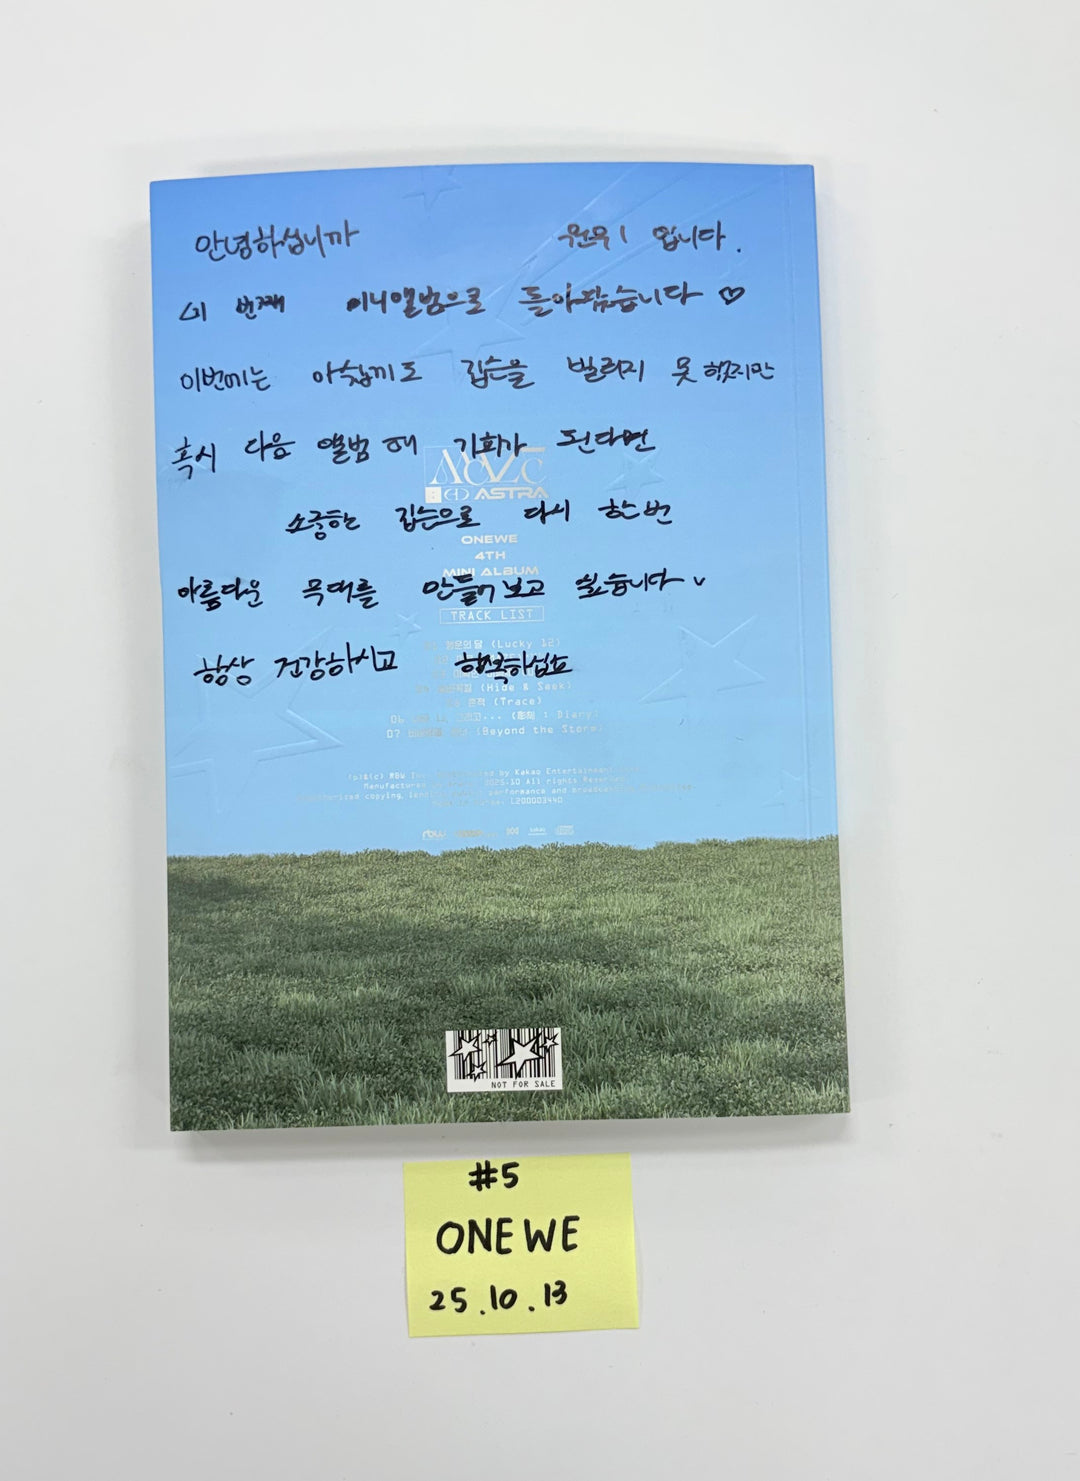 안녕하십니까 원위 입니다.
네 번째 미니앨범으로 돌아왔습니다 ♡
이번에는 아쉽게도 깁슨을 빌리지 못 했지만
혹시 다음 앨범 때 기회가 된다면
소중한 깁슨으로 다시 한 번
아름다운 무대를 만들어 보고 싶습니다
항상 건강하시고 행복하십쇼
MAZE
: AD ASTRA
ONEWE
4TH
MINI ALBUM
TRACK LIST
(Lucky 12)
(Hide & Seek)
흔적 (Trace)
06 그리고... : Diary)
07 (Beyond the Storm)
by Kakao Entertainment
Manufactured 2025.10 All rights Reserved
copying, performance and
L200003440
rbw
NOT FOR SALE
#5
ONEWE
25.10.13